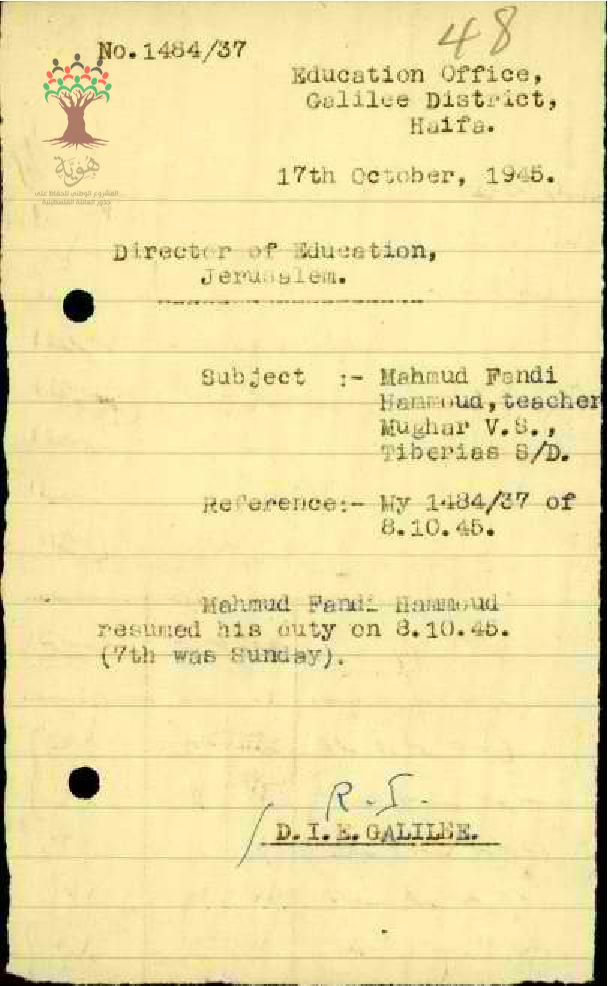 48
No.1484/37
Education Office,
Galilee District,
Haifa.
17th October, 1945.
هَوِيّة
المشروع الوطني للحفاظ على
جذور العائلة الفلسطينية
Director of Education,
Jerusalem.
Subject :- Mahmud Fandi
Hammoud, teacher
Mughar V.S.,
Tiberias S/D.
Reference:- My 1484/37 of
8.10.45.
Mahmud Fandi Hammoud
resumed his duty on 8.10.45.
(7th was Sunday).
R.J.
D.I.E. GALILEE.